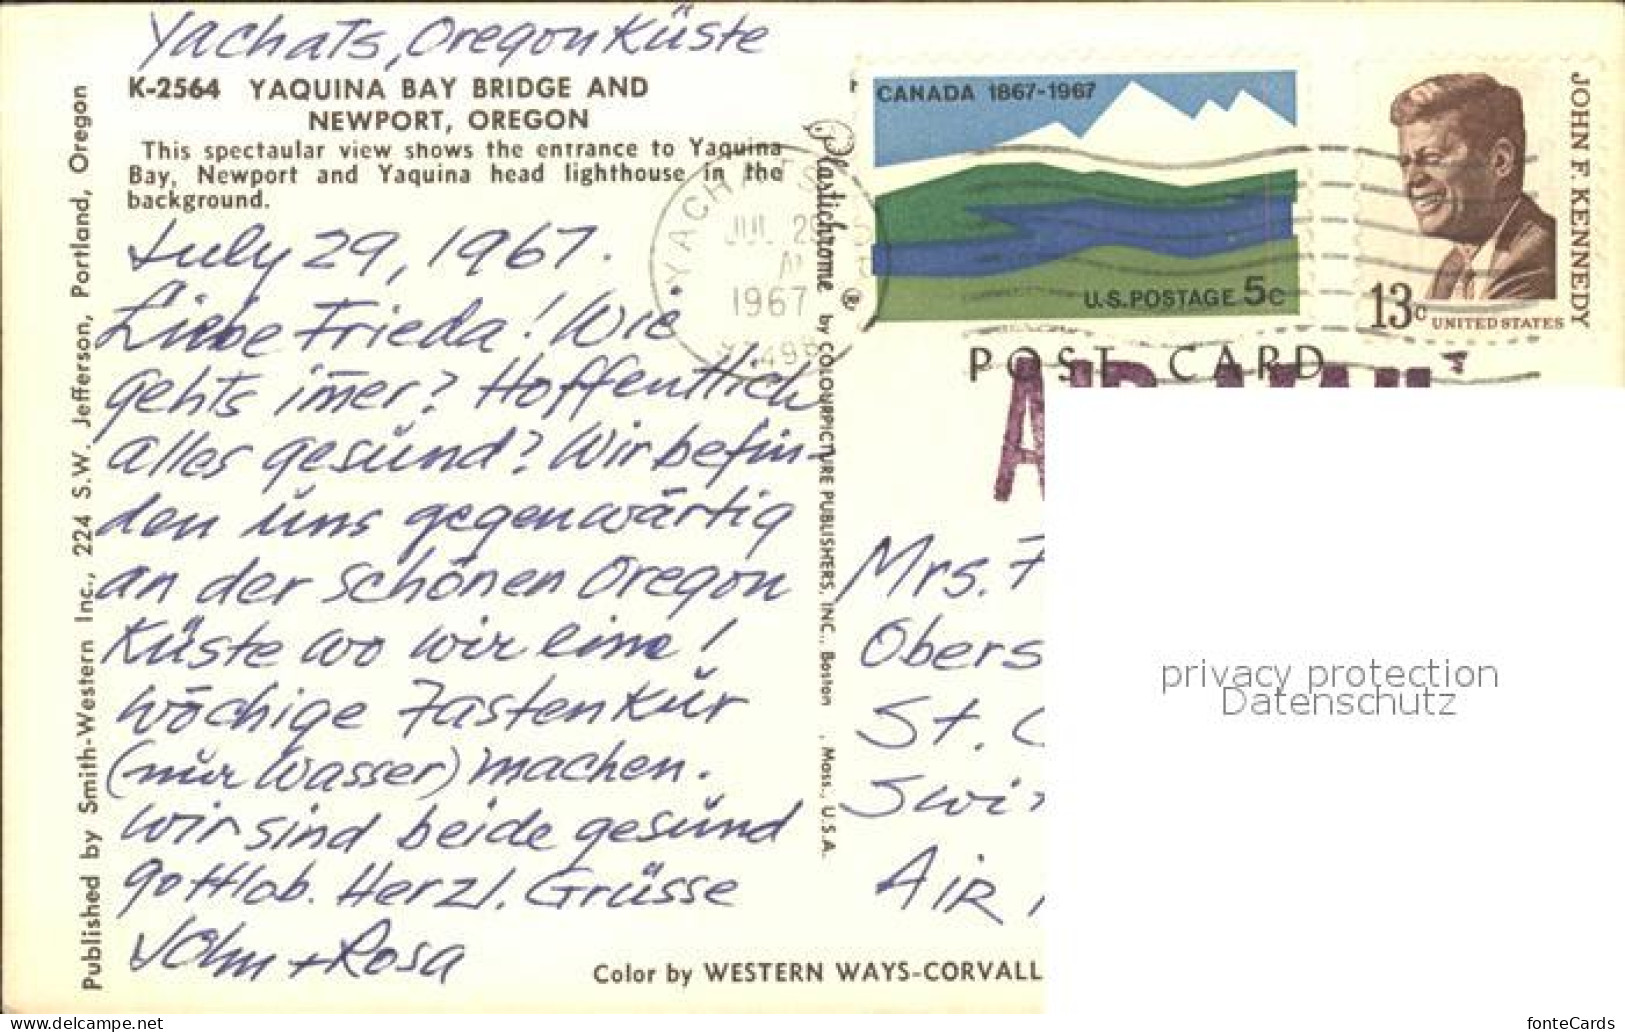 Yachats, Oregon Küste
K-2564 YAQUINA BAY BRIDGE AND
NEWPORT, OREGON
This spectaular view shows the entrance to Yaquina
Bay, Newport and Yaquina head lighthouse in the
background.
July 29, 1967.
Liebe Frieda! Wie
gehts im̄er? Hoffentlich
alles gesund? Wir befin-
den uns gegenwärtig
an der schönen Oregon
Küste wo wir eine!
wöchige Fastenkur
(nur Wasser) machen.
Wir sind beide gesund
gottlob. Herzl. Grüsse
John + Rosa
Published by Smith-Western Inc., 224 S.W. Jefferson, Portland, Oregon
Plastichrome ® by COLOURPICTURE PUBLISHERS, INC., Boston, Mass., U.S.A.
YACHATS
JUL 29
1967
CANADA 1867-1967
U.S. POSTAGE 5c
JOHN F. KENNEDY
13c UNITED STATES
POST CARD
AIR MAIL
Mrs. F
Obers
St.
Swi
AIR
privacy protection
Datenschutz
Color by WESTERN WAYS-CORVALL
delcampe.net
fonteCards